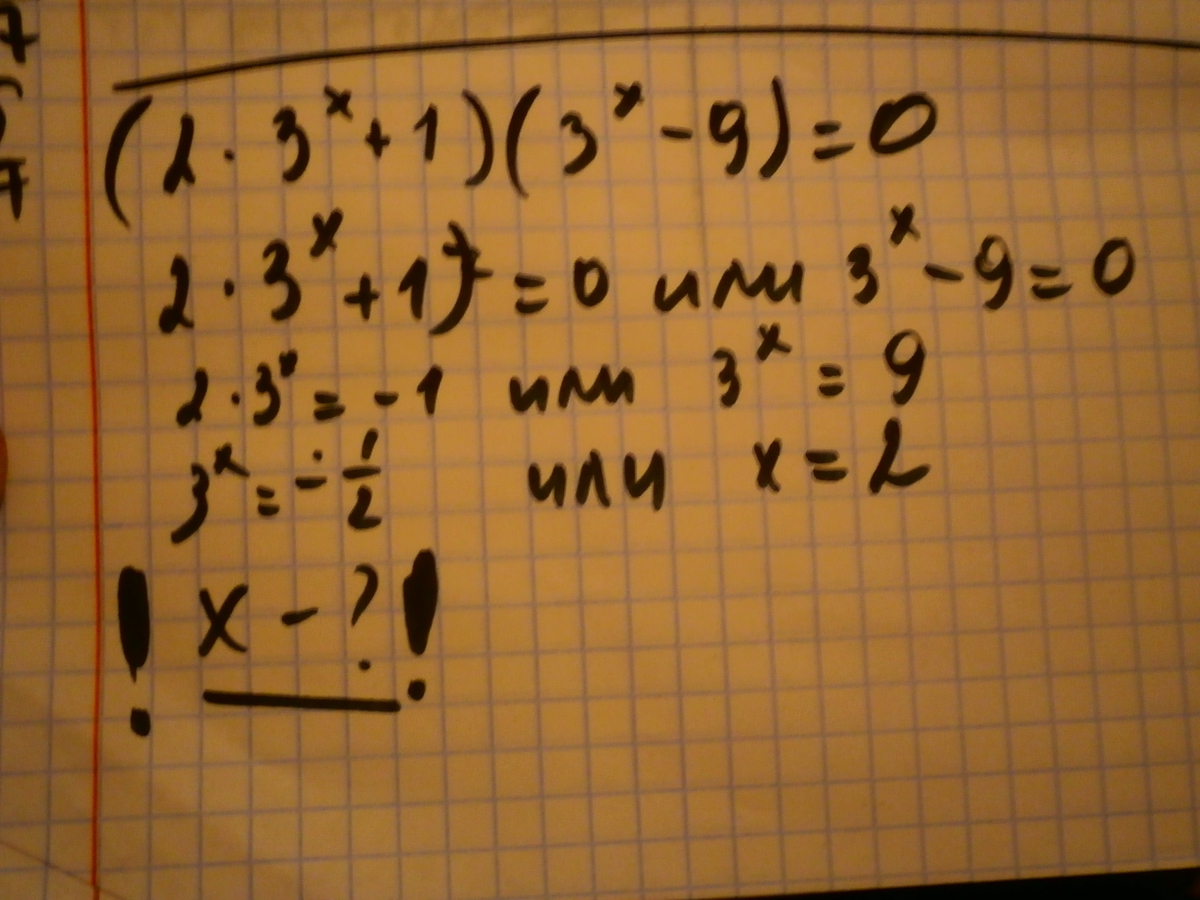 (2 · 3^x + 1)(3^x - 9) = 0
2 · 3^x + 1) = 0 или 3^x - 9 = 0
2 · 3^x = - 1 или 3^x = 9
3^x = - 1/2 или x = 2
! x - ? !